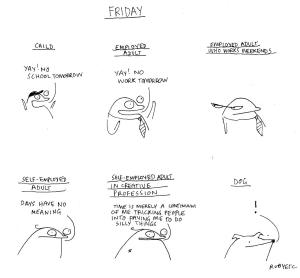 FRIDAY
CHILD
YAY! NO
SCHOOL TOMORROW
EMPLOYED
ADULT
YAY! NO
WORK TOMORROW
EMPLOYED ADULT
WHO WORKS WEEKENDS
SELF-EMPLOYED
ADULT
DAYS HAVE NO
MEANING
SELF-EMPLOYED ADULT
IN CREATIVE
PROFESSION
TIME IS MERELY A CONTINUUM
OF ME TRICKING PEOPLE
INTO PAYING ME TO DO
SILLY THINGS
DOG
!
RUBYETC